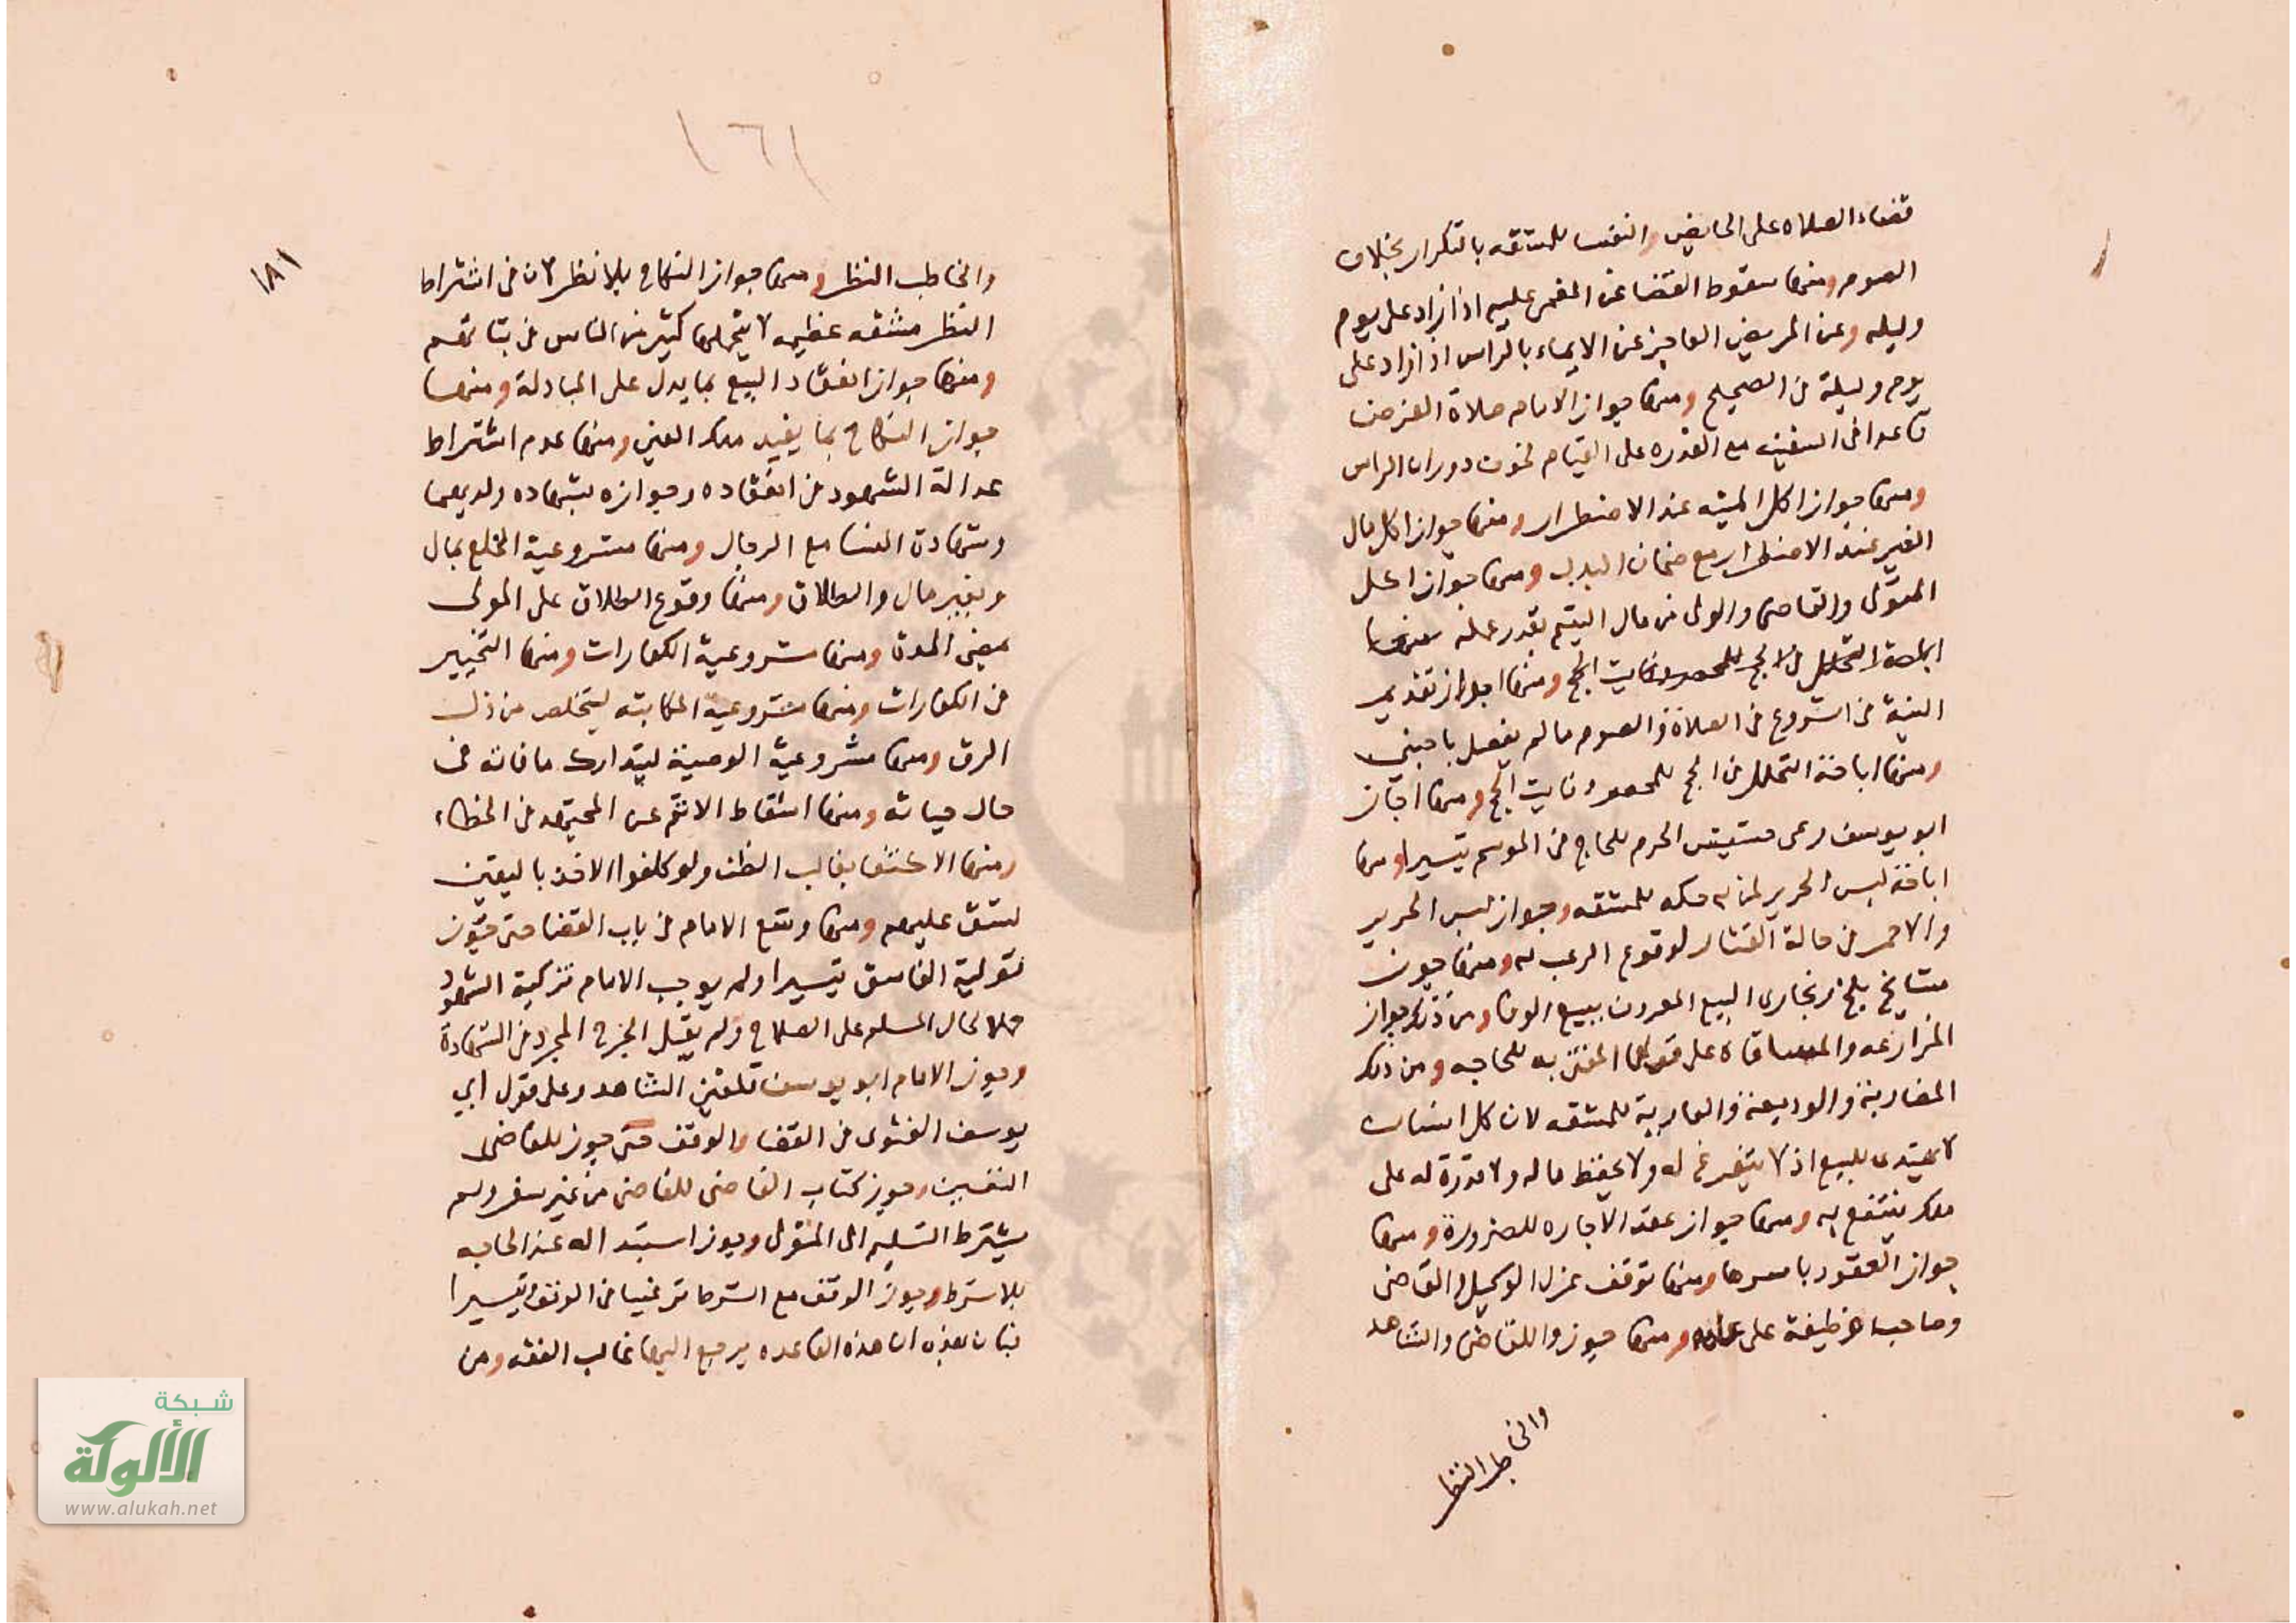 قضاء الصلاه على الحايض والنفسا للمشقه بالتكرار بخلاف
الصوم ومنها سقوط القضا عن المغمى عليه اذا زاد على يوم
وليله وعن المريض العاجز عن الايماء بالراس اذا زاد على
يوم وليلة في الصحيح ومنها جواز الامام صلاة الفرض
قاعدا في السفينه مع القدره على القيام لخوف دوران الراس
ومنها جواز اكل الميته عند الاضطرار ومنها جواز اكل مال
الغير عند الاضطرار مع ضمان البدل ومنها جواز اكل
المتولى والقاضي والولى من مال اليتيم بقدر عمله منها
اباحة التحلل من الحج للمحصر وفايت الحج ومنها جواز تقديم
النية من الشروع في الصلاة والصوم ما لم يفصل باجنبي
ومنها اباحة التحلل من الحج للمحصر وفايت الحج ومنها اجاز
ابو يوسف رعى حشيش الحرم للحاج في الموسم تيسيرا ومنها
اباحة لبس الحرير لمن به حكه للمشقه وجواز لبس الحرير
والاحمر في حالة القتال لوقوع الرعب له ومنها جوز
مشايخ بلخ وبخارى البيع المعروف ببيع الوفا ومن ذلك جواز
المزارعه والمساقاه على قولهما المفتى به للحاجه ومن ذلك
المضاربة والوديعة والعارية للمشقه لان كل انسان
لا يهتدى للبيع اذ لا يتفرغ له ولا يحفظ ماله ولا قدرة له على
ملك ينتفع به ومنها جواز عقد الاجاره للضرورة ومنها
جواز العقود باسرها ومنها توقف عزل الوكيل والقاضى
وصاحب وظيفة على علمه ومنها جوزوا للقاضى والشاهد
والخاطب النظر
١٦١
١٨١
والخاطب النظر ومنها جواز النكاح بلا نظر لان في اشتراط
النظر مشقه عظيمه لا يتحملها كثير من الناس في بناتهم
ومنها جواز انعقاد البيع بما يدل على المبادلة ومنها
جواز النكاح بما يفيد ملك العين ومنها عدم اشتراط
عدالة الشهود في انعقاده وجوازه بشهاده ولديهما
وشهادة النسا مع الرجال ومنها مشروعية الخلع بمال
وبغير مال والطلاق ومنها وقوع الطلاق على المولى
بمضى المدة ومنها مشروعية الكفارات ومنها التخيير
في الكفارات ومنها مشروعية المكاتبه ليتخلص من ذل
الرق ومنها مشروعية الوصية ليتدارك ما فاته في
حال حياته ومنها اسقاط الاثم عن المجتهد في الخطاء
ومنها الاكتفا بغالب الظن ولو كلفوا الاخذ باليقين
لشق عليهم ومنها وسع الامام في باب القضا حتى جوز
تولية الفاسق تيسيرا ولم يوجب الامام تزكية الشهود
حملا لحال المسلم على الصلاح ولم يقبل الجرح المجرد في الشهادة
وجوز الامام ابو يوسف تلقين الشاهد وعلى قول ابي
يوسف الفتوى في القضا والوقف حتى جوز للقاضى
التفسير وجوز كتاب القاضى للقاضى من غير سفر ولم
يشترط التسليم الى المتولى وجوز استبداله عند الحاجه
بلا شرط وجوز الوقف مع الشرط ترغيبا في الوقف تيسيرا
فبان بهذه ان هذه القاعده يرجع اليها غالب الفقه ومن
شبكة
الألوكة
www.alukah.net